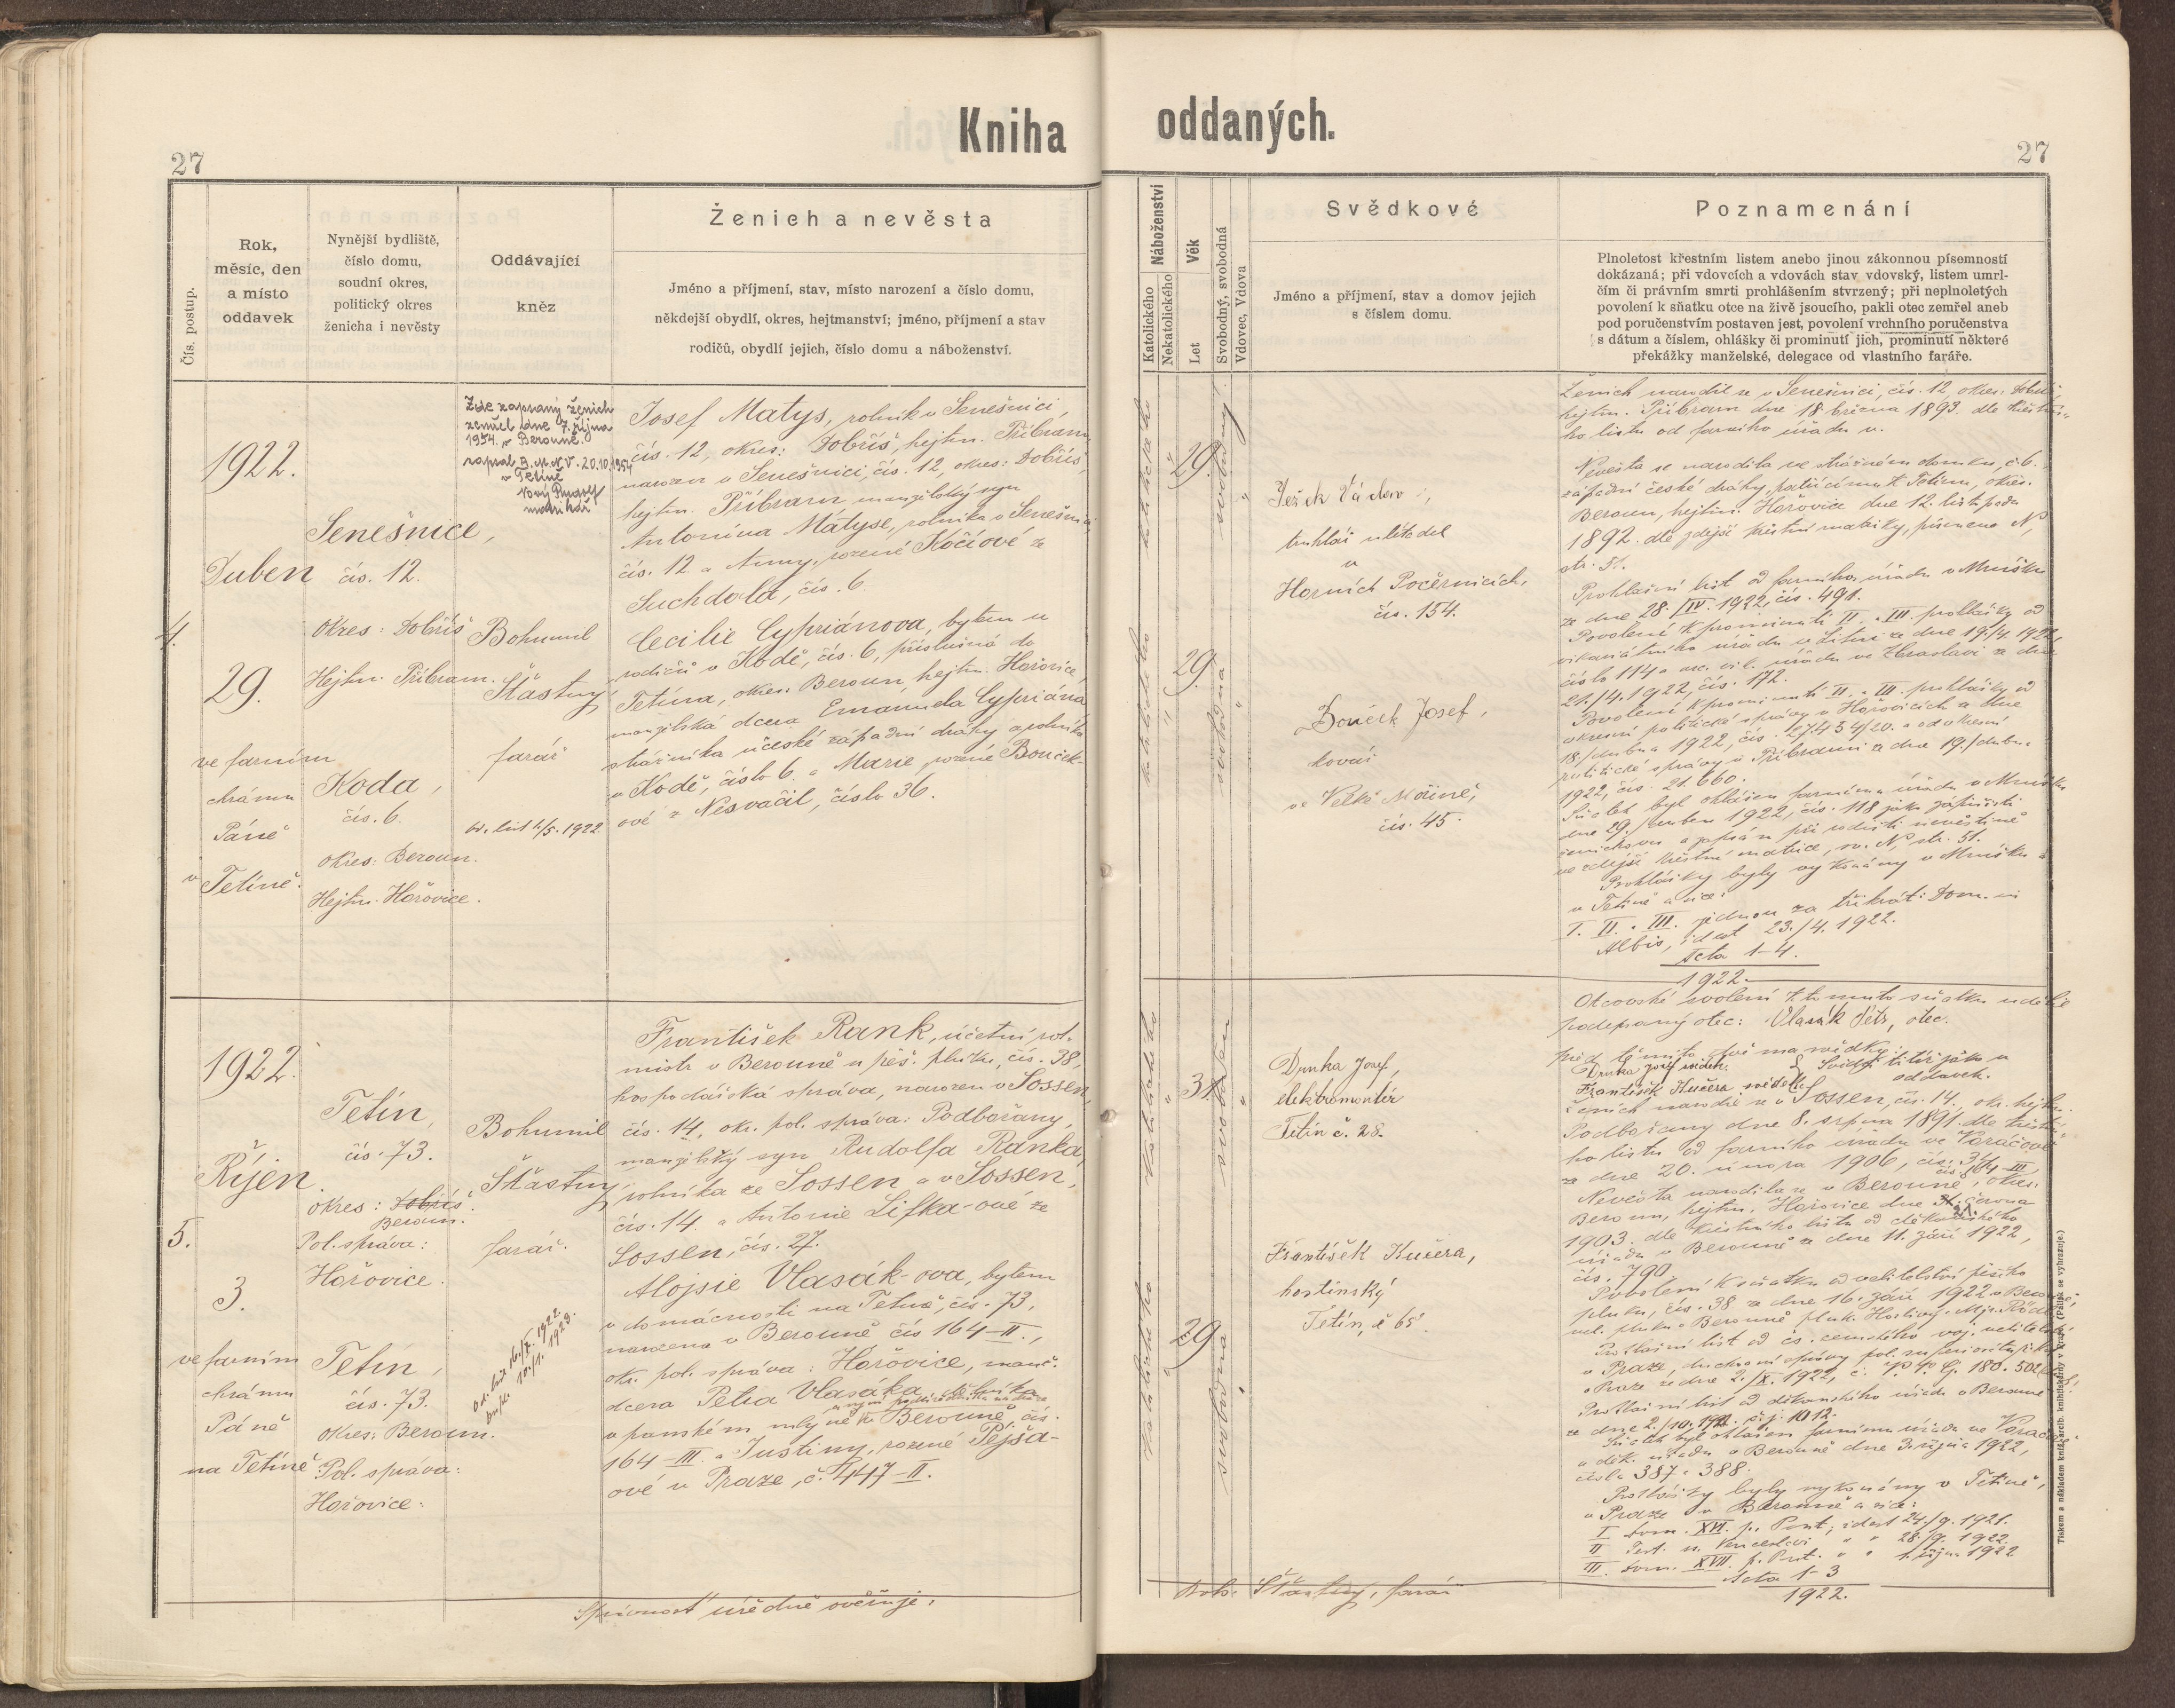 Kniha
27
Čís. postup.
Rok,
měsíc, den
a místo
oddavek
Nynější bydliště,
číslo domu,
soudní okres,
politický okres
ženicha i nevěsty
Oddávající
kněz
Ženich a nevěsta
Jméno a příjmení, stav, místo narození a číslo domu,
někdejší obydlí, okres, hejtmanství; jméno, příjmení a stav
rodičů, obydlí jejich, číslo domu a náboženství.
4.
1922.
Duben
29.
ve farním
chrámu
Páně
v Tetíně.
Senešnice,
čís. 12.
okres: Dobříš
Hejtm. Příbram.
Koda,
čís. 6.
okres: Beroun.
Hejtm. Hořovice.
Zde zapsaný ženich
zemřel dne 7. října
1954 v Berouně.
zapsal B.M.N.V. 20.10.1954
v Tetíně
Nový Rudolf
matrikář
Bohumil
Šťastný
farář
od. list 4/5. 1922
Josef Matys, rolník v Senešnici,
čís. 12, okres: Dobříš, hejtm. Příbram,
narozen v Senešnici, čís. 12, okres: Dobříš,
hejtm. Příbram, manželský syn
Antonína Matyse, rolníka v Senešnici
čís. 12 a Anny, rozené Kočíové ze
Suchdola, čís. 6.
Cecilie Cypriánova, bytem u
rodičů v Kodě, čís. 6, příslušná do
Tetína, okres Beroun, hejtm. Hořovice,
manželská dcera Emanuela Cypriána
strážníka u české západní dráhy a rolníka
v Kodě, číslo 6. a Marie, rozené Bouček-
ové z Nesvačil, číslo 36.
5.
1922.
Říjen
3.
ve farním
chrámu
Páně
na Tetíně
Tetín,
čís. 73.
okres: Dobříš.
Beroun.
Pol. správa:
Hořovice.
Tetín,
čís. 73.
okres: Beroun.
Pol. správa:
Hořovice.
Bohumil
Šťastný
farář.
Od. list 16./X. 1922.
10./1. 1923.
František Rank, účetní rot-
mistr v Berouně u pěš. pluku, čís. 38,
hospodářská správa, narozen v Sossen,
čís. 14, okr. pol. správa: Podbořany,
manželský syn Rudolfa Ranka,
rolníka ze Sossen a v Sossen,
čís. 14. a Antonie Lifka-ové ze
Sossen, čís. 27.
Alojsie Vlasák-ova, bytem
v domácnosti na Tetíně, čís. 73,
narozena v Berouně čís 164-II.,
okr. pol. správa: Hořovice, manž.
dcera Petra Vlasáka, dělníka
v panském mlýně v Berouně, čís.
164-III. a Justiny, rozené Pejša-
ové v Praze, č. 447-II.
Správnost úředně ověřuje:
oddaných.
27
Náboženství
Katolického
Nekatolického
Věk
Let
Svobodný, svobodná
Vdovec, Vdova
Svědkové
Jméno a příjmení, stav a domov jejich
s číslem domu.
Poznamenání
Plnoletost křestním listem anebo jinou zákonnou písemností
dokázaná; při vdovcích a vdovách stav vdovský, listem umrl-
čím či právním smrti prohlášením stvrzený; při neplnoletých
povolení k sňatku otce na živě jsoucího, pakli otec zemřel aneb
pod poručenstvím postaven jest, povolení vrchního poručenstva
s dátum a číslem, ohlášky či prominutí jich, prominutí některé
překážky manželské, delegace od vlastního faráře.
katolického
29.
svobodný
katolického
29.
svobodná
Ješek Václav,
truhlář u létadel
v
Horních Počernicích,
čís. 154.
Bouček Josef,
kovář
ve Velké Mořině,
čís. 45.
Ženich narodil se v Senešnici, čís. 12, okres: Dobříš,
hejtm. Příbram dne 18. března 1893. dle křestní-
ho listu od farního úřadu v.
Nevěsta se narodila ve strážném domku, č. 6.
západní české dráhy, patřícímu k Tetínu, okres.
Beroun, hejtm. Hořovice dne 12. listopadu
1892. dle zdejší křestní matriky, písmeno N,
str. 51.
Prohlašní list od farního úřadu v Mníšku
ze dne 28./IV. 1922, čís. 491.
Povolení k prominutí II. a III. prohlášky od
vikariátního úřadu v Litni ze dne 19./4. 1922,
číslo 114 a arc. vik. úřadu ve Zbraslavi ze dne
21./4. 1922, čís. 172.
Povolení k prominutí II. a III. prohlášky od
okresní politické správy v Hořovicích ze dne
18./dubna 1922, čís. 27.434/20. a od okresní
politické správy v Příbrami ze dne 19./dubna
1922, čís. 21.660.
Sňatek byl ohlášen farnímu úřadu v Mníšku
dne 29./duben 1922, čís. 118 jako zápiští
ženichovu a zapsán při rodišti nevěstině
ve zdejší křestní matrice, sv. N, str. 51.
Prohlášky byly vykonány v Mníšku a
v Tetíně a sice:
I. II. a III. jednou za třikrát: Dom. in
Albis, id est 23./4. 1922.
Acta 1-4.
1922.
katolického
31.
svoboden
katolického
29
svobodna
Drnka Josef,
elektromontér
Tetín č. 28.
František Kučera,
hostinský
Tetín, č 65
Otcovské svolení k tomuto sňatku udělil
podepsaný otec: Vlasák Petr, otec.
před těmito dvěma svědky:
Drnka Josef svědek.
František Kučera svědek
Svědci titíž jako u
oddavek.
Ženich narodil se v Sossen, čís. 14., okr. hejtm.
Podbořany dne 8. srpna 1891. dle křestní-
ho listu od farního úřadu ve Voračově
ze dne 20. února 1906, čís. 34.
čís. 164-III,
Nevěsta narodila se v Berouně, okres.
Beroun, hejtm. Hořovice dne 21. června
1903. dle křestního listu od děkanského
úřadu v Berouně ze dne 11. září 1922,
čís. 790.
Povolení k sňatku od velitelství pěšího
pluku, čís. 38 ze dne 16. září 1922 v Berouně,
Prohlašní list od čs. zemského voj. velitelství
v Praze, duchovní správy
v Praze ze dne 2./X. 1922,
Prohlašní list od děkanského úřadu v Berouně
ze dne 2./10. 1922. č. j. 1012.
Sňatek byl ohlášen farnímu úřadu ve Voračově
a děk. úřadu v Berouně dne 3. října 1922,
čísla 387 a 388.
Prohlášky byly vykonány v Tetíně,
v Praze a v Berouně a sice:
I Dom. XVI. p. Pent., id est 24./9. 1921.
II Fest. s. Venceslai " " 28./9. 1922.
III. Dom. XVII. p. Pent. " " 1. října 1922
Acta 1-3
1922.
Boh. Šťastný, farář